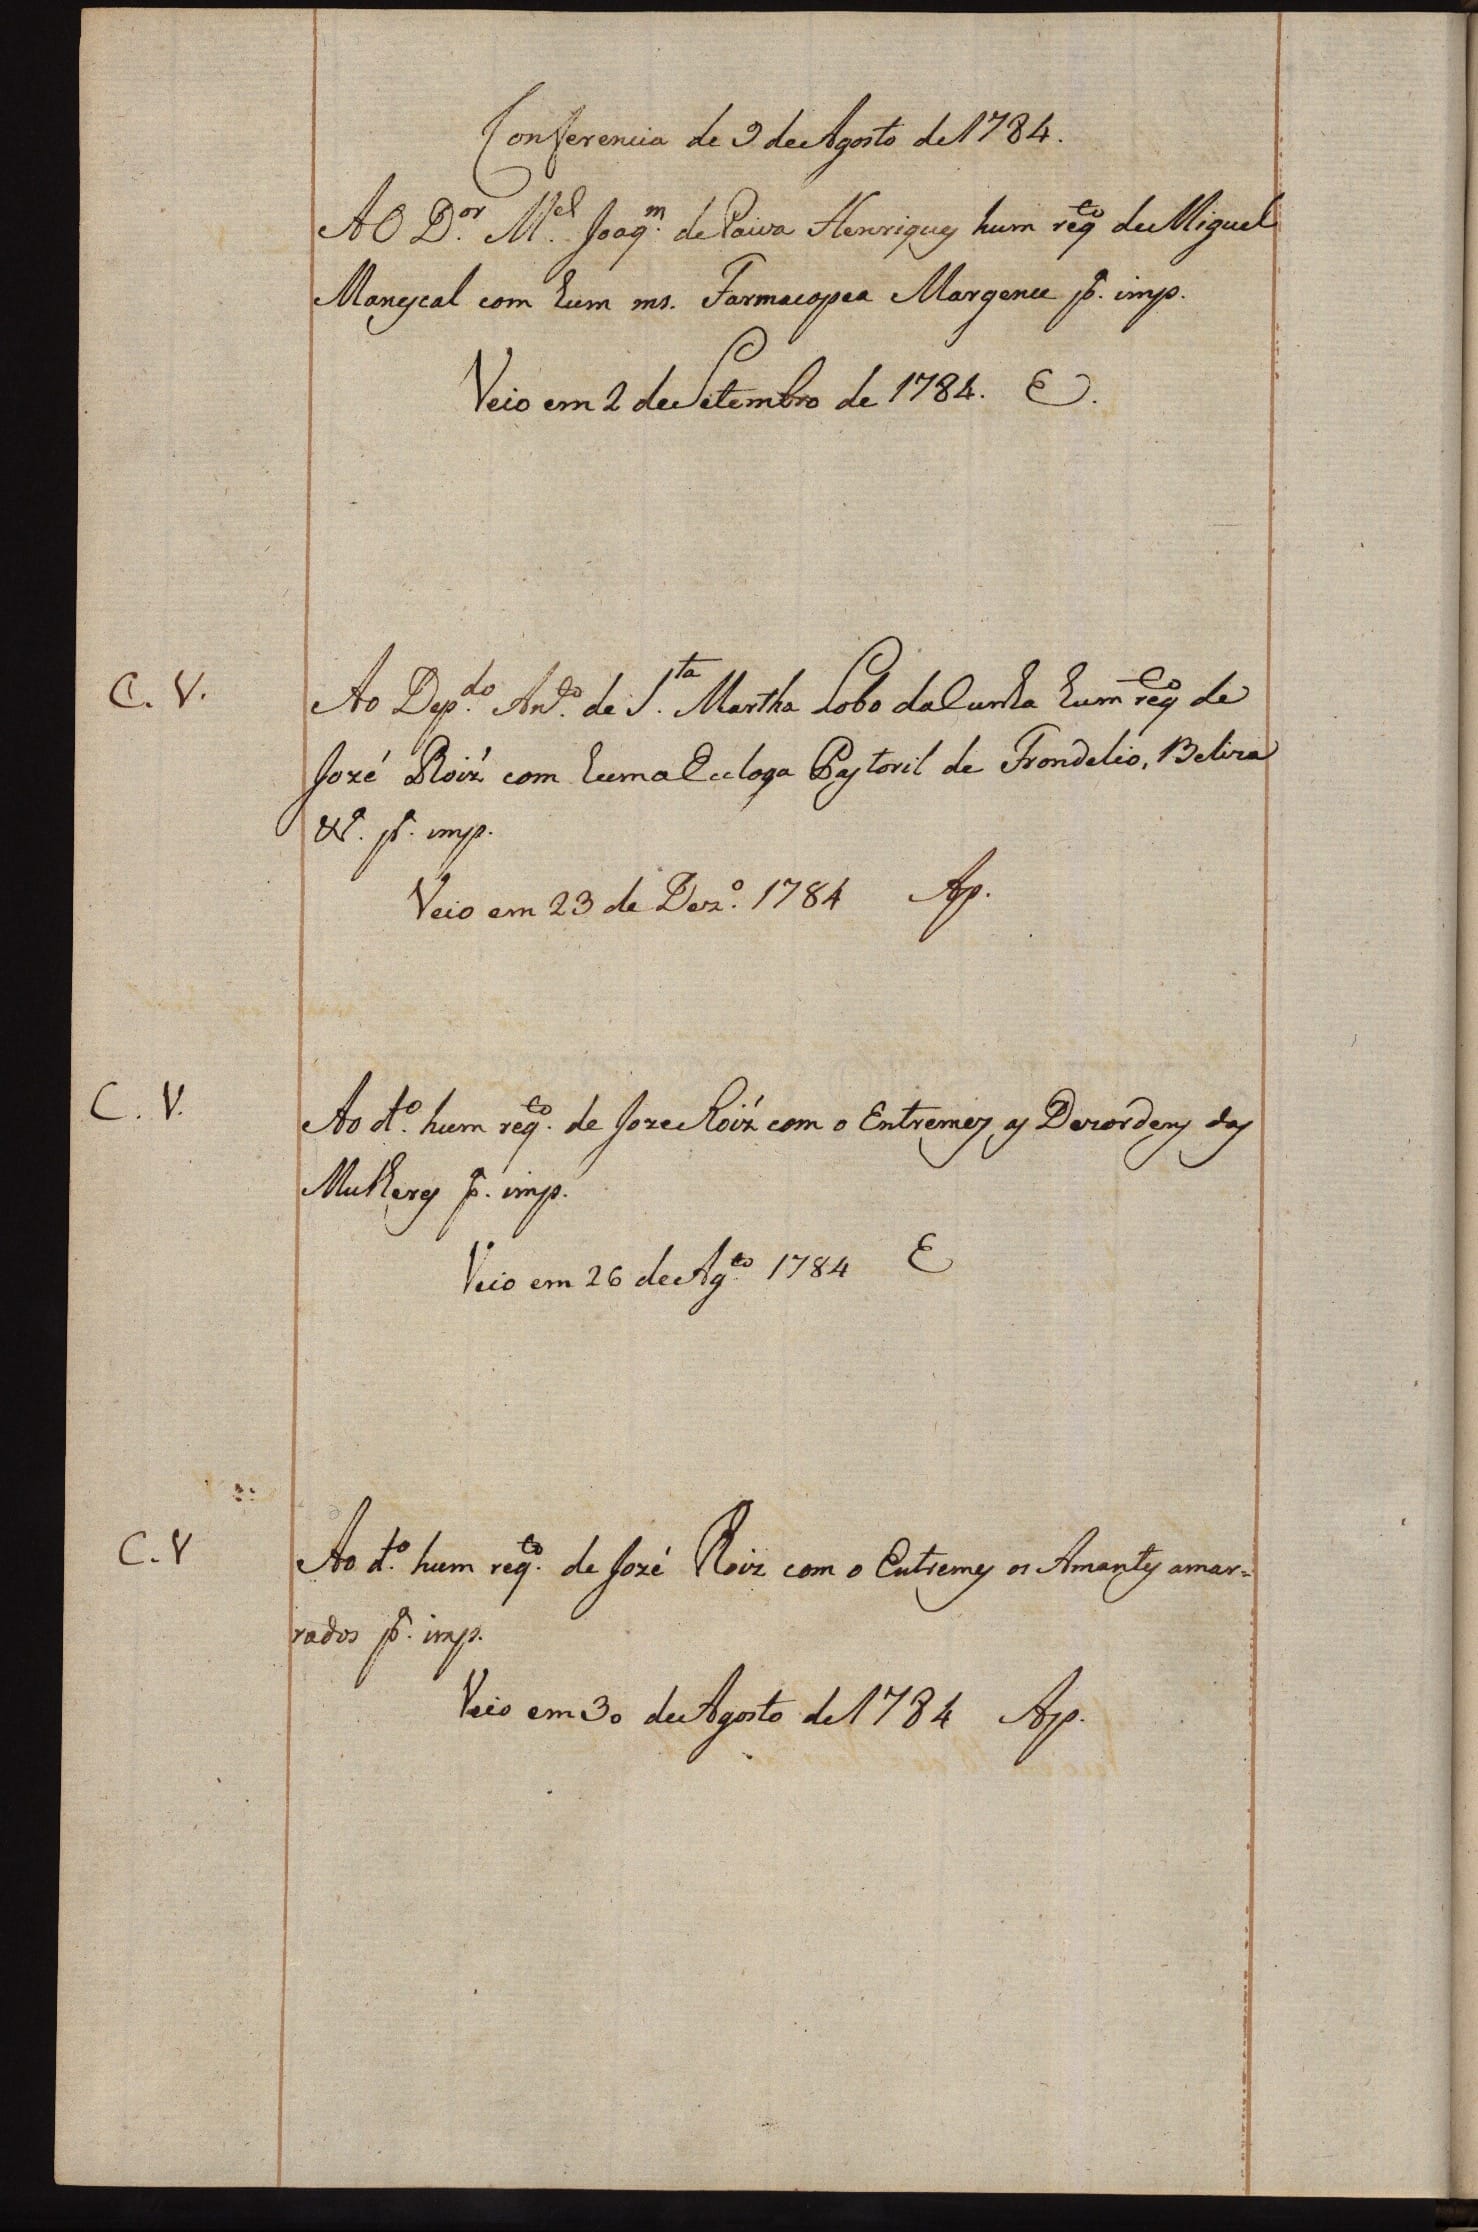 Conferencia de 9 de Agosto de 1784.
Ao D.or M.el Joaq.m de Paiva Henriques hum req.to de Miguel
Manescal com hum ms. Farmacopea Margence p.a imp.
Veio em 2 de Setembro de 1784. E.
C. V. Ao Dep.do Ant.o de S.ta Martha Lobo da Cunha hum req.to de
Jozé Roiz com huma Ecloga Pastoril de Frondelio, Beliza
&.a p.a imp.
Veio em 23 de Dez.o 1784 Ap.
C. V. Ao d.o hum req.to de Joze Roiz com o Entremez as Dezordens das
Mulheres p.a imp.
Veio em 26 de Ag.to 1784 E
C. V Ao d.o hum req.to de Jozé Roiz com o Entremes os Amantes amar=
rados p.a imp.
Veio em 30 de Agosto de 1784 Ap.